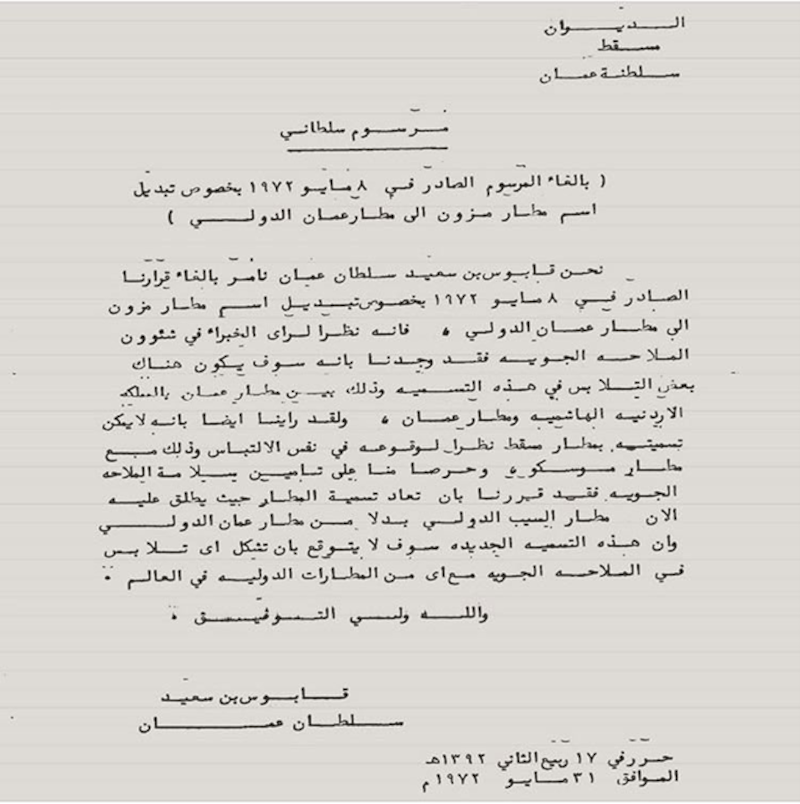 الديوان
مسقط
سلطنة عمان
مرسوم سلطاني
( بالغاء المرسوم الصادر في ٨ مايو ١٩٧٢ بخصوص تبديل
اسم مطار مزون الى مطار عمان الدولي )
نحن قابوس بن سعيد سلطان عمان نامر بالغاء قرارنا
الصادر في ٨ مايو ١٩٧٢ بخصوص تبديل اسم مطار مزون
الى مطار عمان الدولي ، فانه نظرا لراى الخبراء في شئوون
الملاحه الجويه فقد وجدنا بانه سوف يكون هناك
بعض التلابس في هذه التسميه وذلك بين مطار عمان بالمملكه
الاردنيه الهاشميه ومطار عمان ، ولقد راينا ايضا بانه لايمكن
تسميته بمطار مسقط نظرا لوقوعه في نفس الالتباس وذلك مع
مطار موسكو ، وحرصا منا على تامين سلامة الملاحه
الجويه فقد قررنا بان تعاد تسمية المطار حيث يطلق عليه
الان مطار السيب الدولي بدلا من مطار عمان الدولي
وان هذه التسميه الجديده سوف لا يتوقع بان تشكل اى تلابس
في الملاحه الجويه مع اى من المطارات الدوليه في العالم .
والله ولي التوفيق ،
قابوس بن سعيد
سلطان عمان
حرر في ١٧ ربيع الثاني ١٣٩٢هـ
الموافق ٣١ مايو ١٩٧٢م